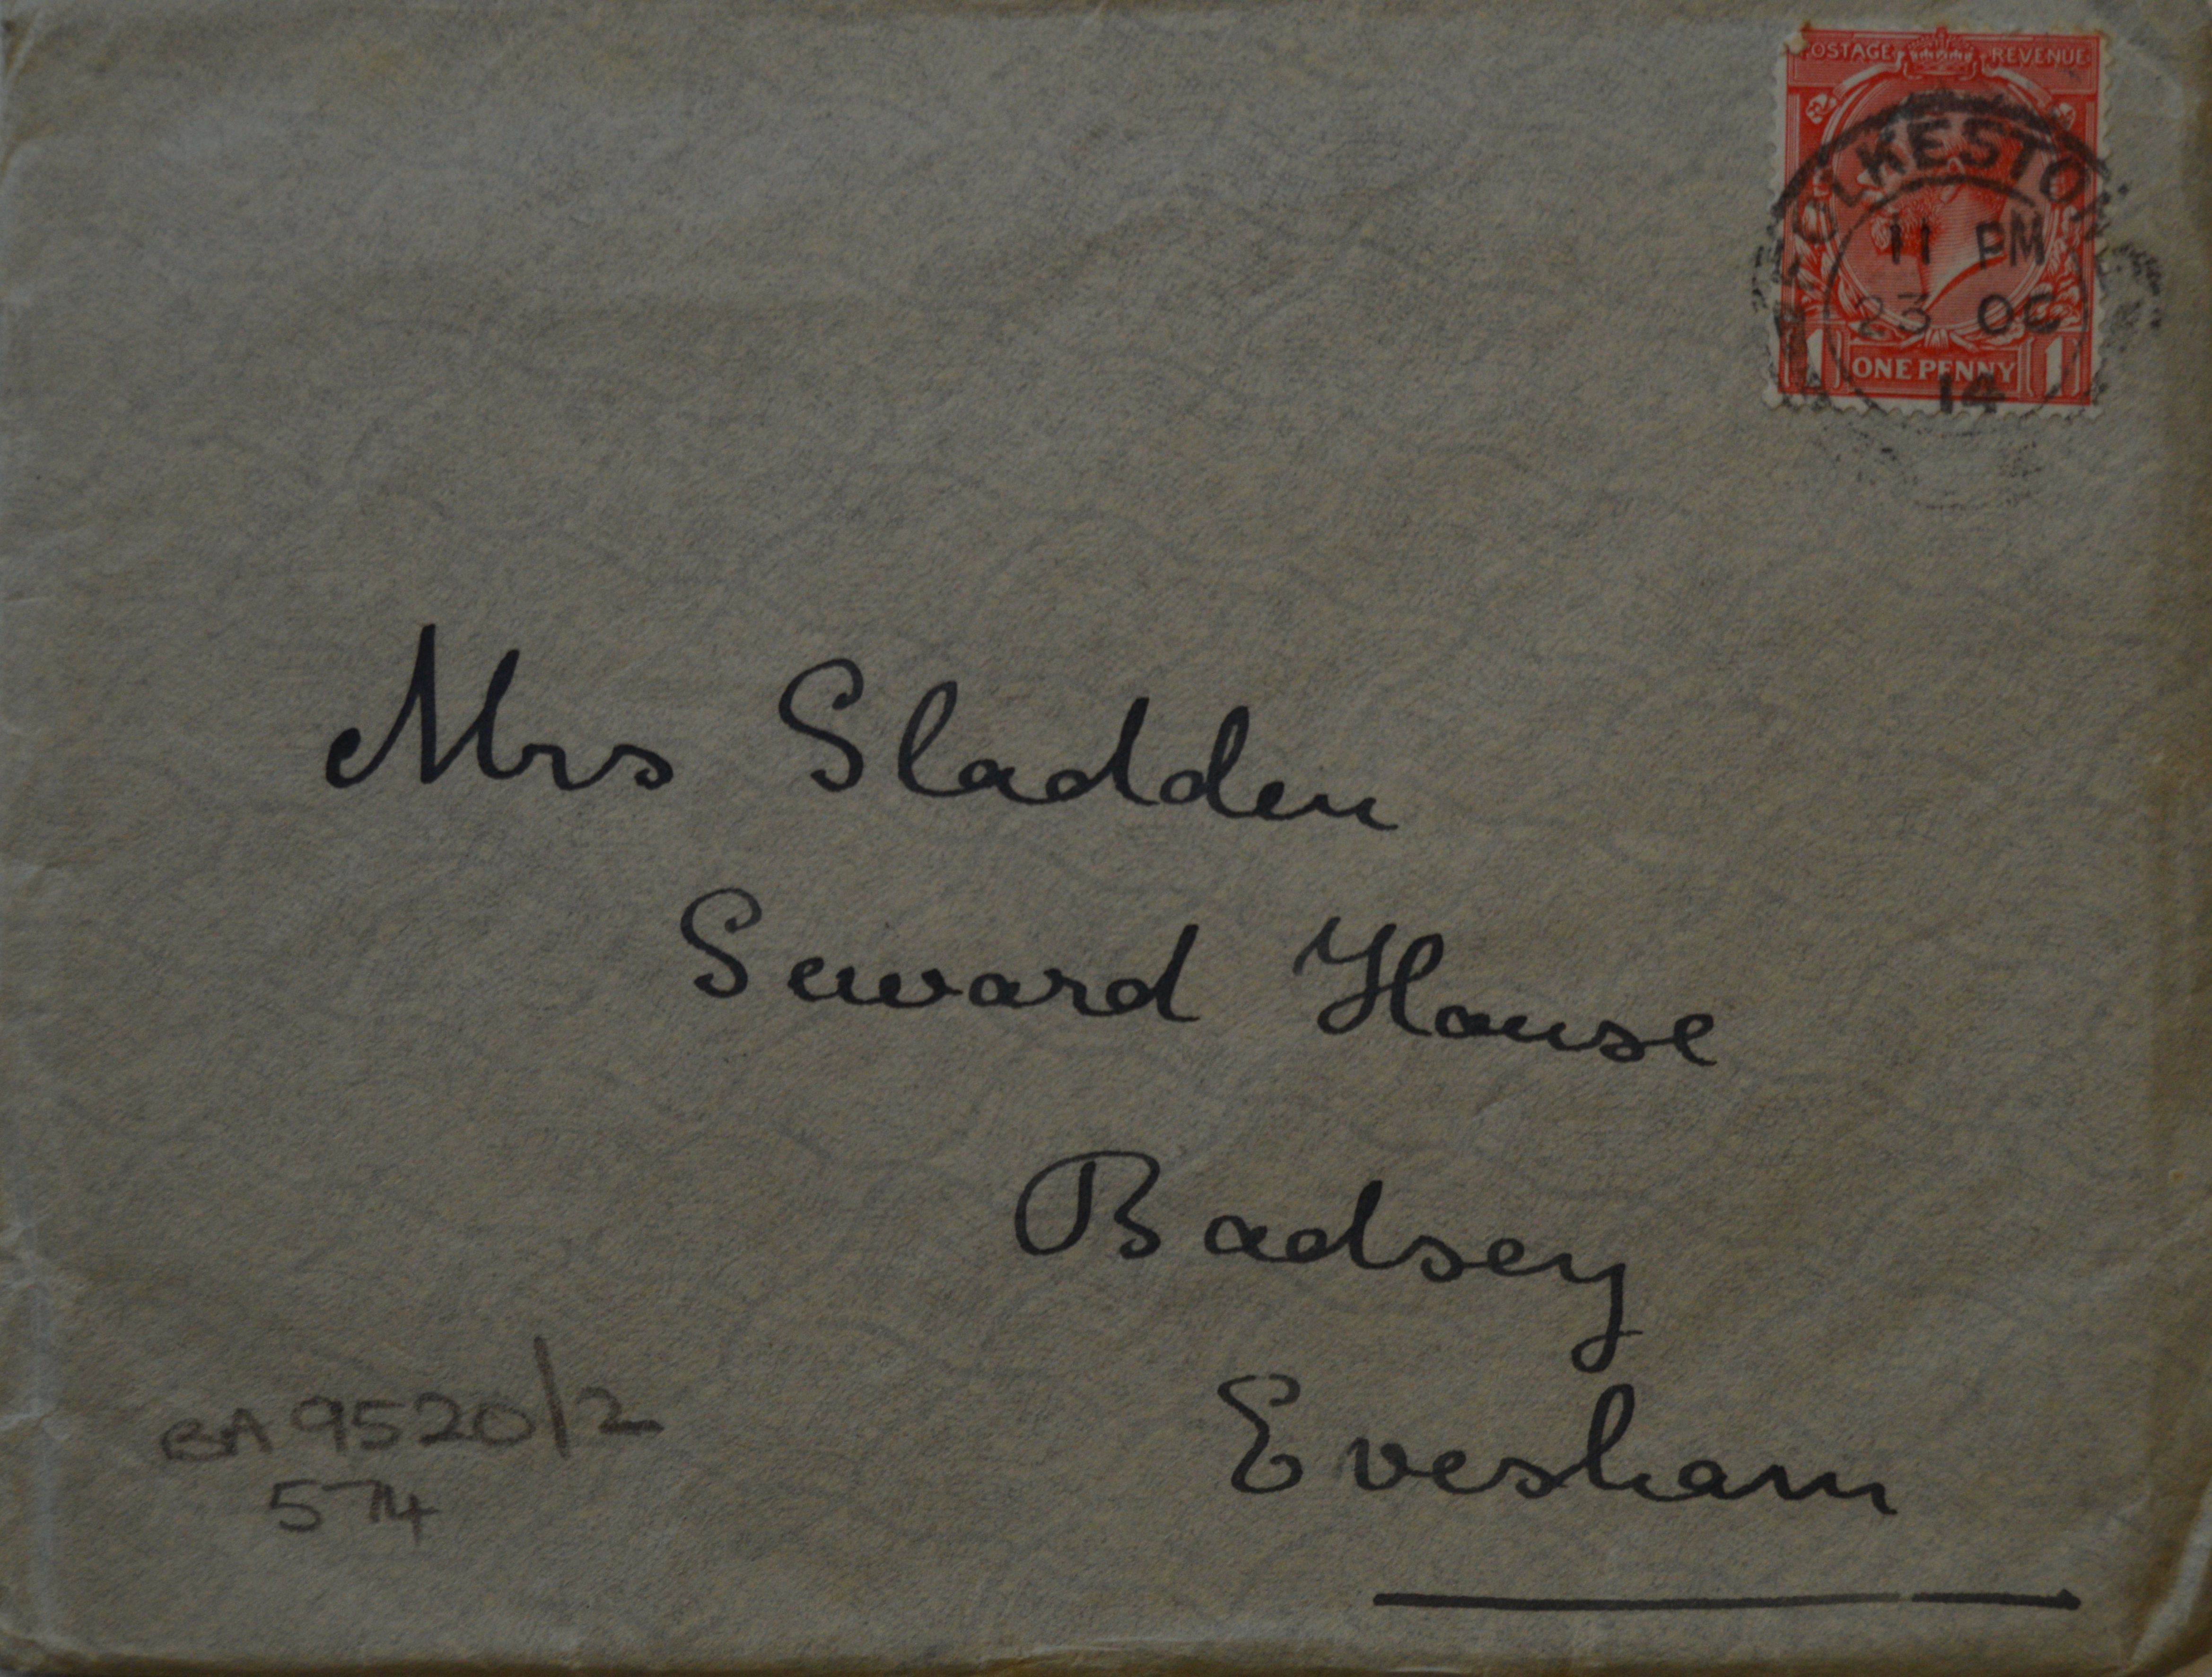 POSTAGE REVENUE
FOLKESTONE
11 PM
23 OC
14
1 ONE PENNY 1
Mrs Sladden
Seward House
Badsey
Evesham
BA 9520/2
574